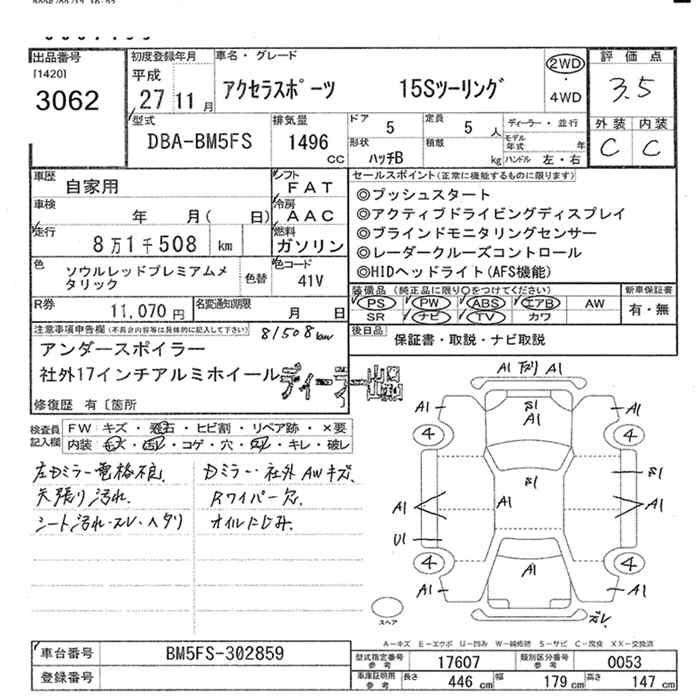 出品番号
[1420]
3062
初度登録年月
平成
27 11月
車名・グレード
アクセラスポーツ 15Sツーリング
2WD
・
4WD
評価点
3.5
外装 内装
C C
型式
DBA-BM5FS
排気量
1496
cc
ドア
5
定員
5 人
形状
ハッチB
積載
kg
ディーラー・並行
モデル年式 年
ハンドル 左・右
車歴
自家用
車検
年 月( 日)
走行
8万1千508 km
色
ソウルレッドプレミアムメタリック
色替
シフト
F A T
冷房
A A C
燃料
ガソリン
色コード
41V
R券
11,070 円
名変通知期限
月 日
セールスポイント(正常に機能するものに限ります)
◎プッシュスタート
◎アクティブドライビングディスプレイ
◎ブラインドモニタリングセンサー
◎レーダークルーズコントロール
◎HIDヘッドライト(AFS機能)
装備品(純正品に限り○をつけてください)
PS PW ABS エアB AW
SR ナビ TV カワ
新車保証書
有・無
後日品
保証書・取説・ナビ取説
注意事項申告欄(不具合内容等は具体的に記入して下さい)
81508km
アンダースポイラー
社外17インチアルミホイール
ディーラー出品
修復歴 有〔箇所
検査員記入欄
FW:キズ・飛石・ヒビ割・リペア跡・×要
内装:キズ・汚れ・コゲ・穴・切れ・キレ・破レ
左Dミラー電格不良
天張り汚れ
シート汚れ・スレ・ヘタリ
Dミラー・社外AWキズ
Rワイパー欠
オイルにじみ
A1 A1
A1 A1
4 4
A1
A1
A1 A1
U1
4 4
A1 A1 A1
スペア
A−キズ E−エクボ U−凹み W−補修跡 S−サビ C−腐食 XX−交換済
車台番号
BM5FS-302859
登録番号
型式指定番号
参考
17607
類別区分番号
参考
0053
車庫証明用
参考
長さ 446 cm 幅 179 cm 高さ 147 cm